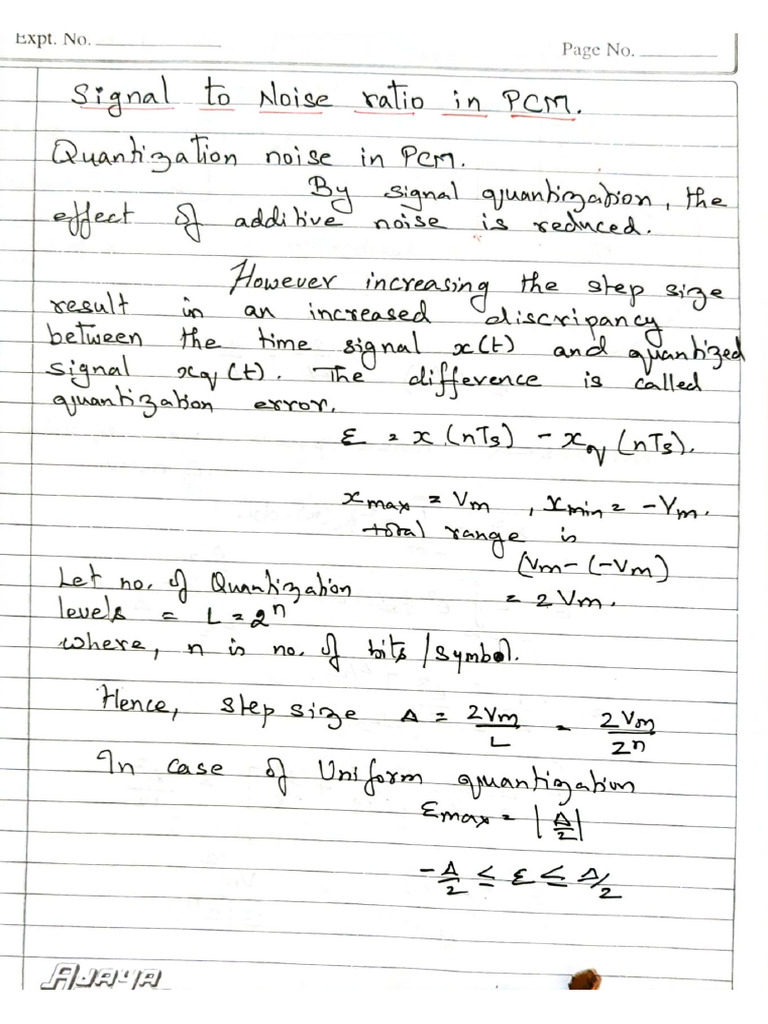 Expt. No.
Page No.
Signal to Noise ratio in PCM.
Quantization noise in PCM.
By signal quantization, the
effect of additive noise is reduced.
However increasing the step size
result in an increased discripancy
between the time signal x(t) and quantized
signal xq(t). The difference is called
quantization error.
ε = x(nTs) - xq(nTs).
xmax = Vm, xmin = -Vm.
total range is
(Vm-(-Vm)
= 2Vm.
Let no. of Quantization
levels = L = 2ⁿ
where, n is no. of bits/symbol.
Hence, step size Δ = 2Vm/L = 2Vm/2ⁿ
In case of Uniform quantization
εmax = |Δ/2|
-Δ/2 ≤ ε ≤ Δ/2
AJAYA